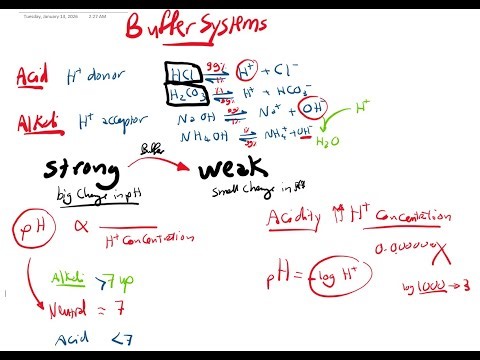 Tuesday, January 13, 2015 2:27 AM
Buffer Systems
Acid H⁺ donor
HCl 99% H⁺ + Cl⁻
H₂CO₃ H⁺ + HCO₃⁻
Alkali H⁺ acceptor
NaOH Na⁺ + OH⁻ H⁺
NH₄OH NH₄⁺ + OH⁻
H₂O
strong Buffer weak
big change in pH small change in pH
pH ∝
H⁺ Concentration
Acidity ↑↑ H⁺ Concentration
0.000000
pH = -log H⁺
log 1000 → 3
Alkali >7 up
Neutral = 7
Acid <7